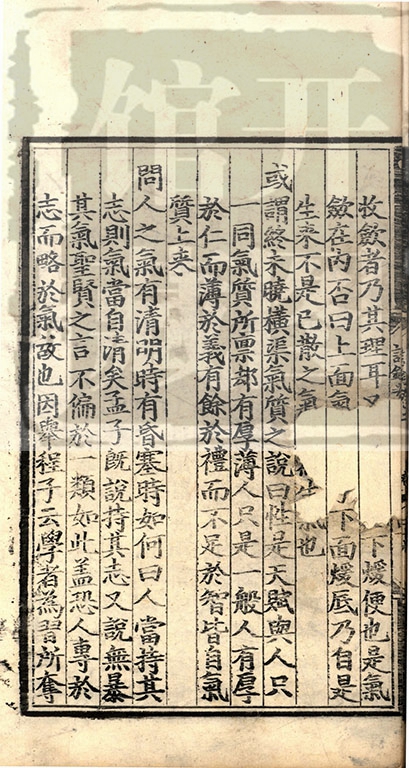 收斂者乃其理耳曰
下煖便也是氣
斂在內否曰上面氣
下面煖底乃自是
生來不是已散之氣
也
或謂終未曉橫渠氣質之說曰性是天賦與人只
同氣質所禀却有厚薄人只是一般人有厚
於仁而薄於義有餘於禮而不足於智皆自氣
質上來
問人之氣有清明時有昏塞時如何曰人當持其
志則氣當自清矣孟子既說持其志又說無暴
其氣聖賢之言不偏於一類如此盖恐人專於
志而略於氣故也因舉程子云學者為習所奪